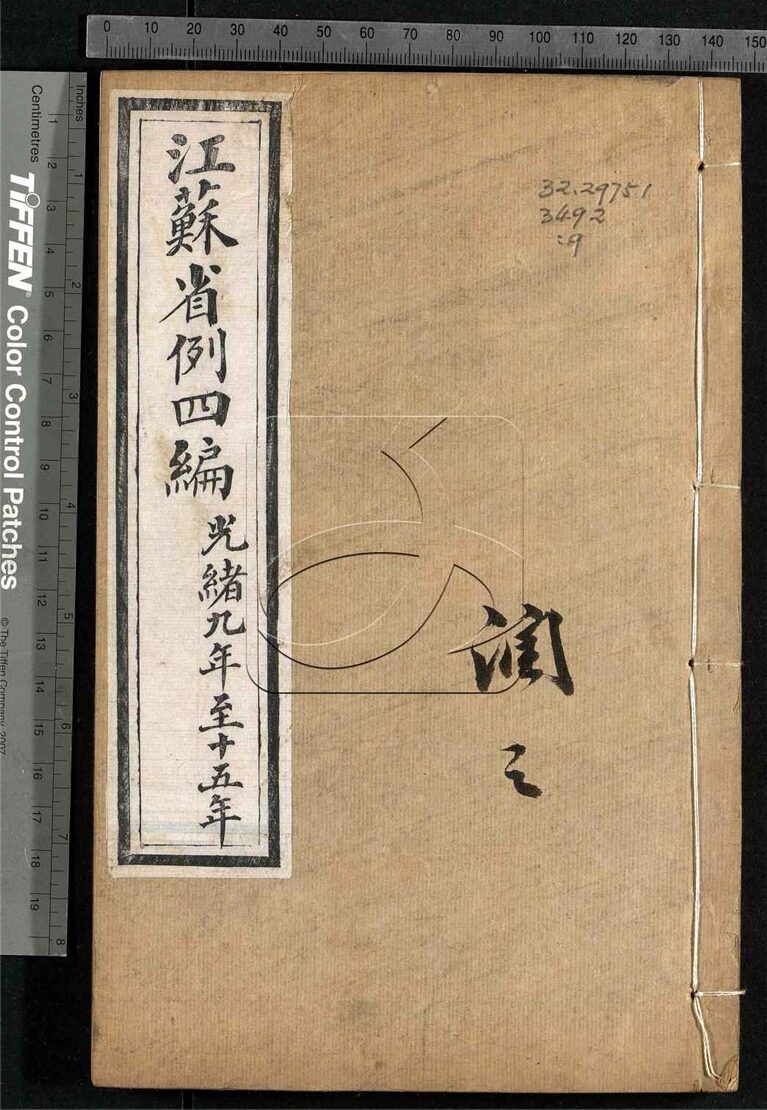 0 10 20 30 40 50 60 70 80 90 100 110 120 130 140 150
Inches
Centimetres
1 2 3 4 5 6 7 8 9 10 11 12 13 14 15 16 17 18 19
1 2 3 4 5 6 7 8
TIFFEN® Color Control Patches
© The Tiffen Company, 2007
32.29751
3492
:9
江蘇省例四編
光緒九年至十五年
潤之